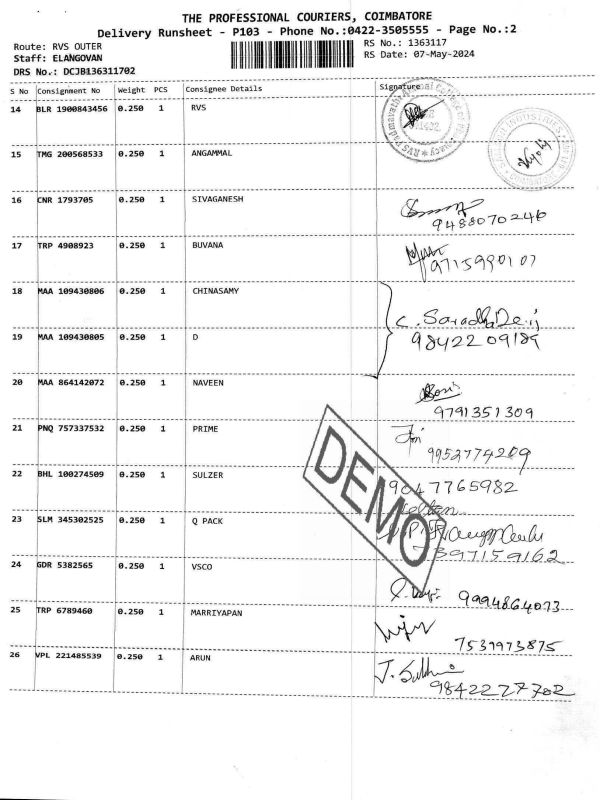 THE PROFESSIONAL COURIERS, COIMBATORE
Delivery Runsheet - P103 - Phone No.:0422-3505555 - Page No.:2
Route: RVS OUTER
RS No.: 1363117
Staff: ELANGOVAN
RS Date: 07-May-2024
DRS No.: DCJB136311702
S No Consignment No Weight PCS Consignee Details Signature
14 BLR 1900843456 0.250 1 RVS
15 TMG 200568533 0.250 1 ANGAMMAL
16 CNR 1793705 0.250 1 SIVAGANESH
9488070246
17 TRP 4908923 0.250 1 BUVANA
9715990107
18 MAA 109430806 0.250 1 CHINASAMY
C. Saradha Devi
19 MAA 109430805 0.250 1 D
9842209189
20 MAA 864142072 0.250 1 NAVEEN
9791351309
21 PNQ 757337532 1 PRIME
0.250
9952774209
22 BHL 100274509 0.250 1 SULZER
9047765982
23 SLM 345302525 0.250 1 Q PACK
397159162
24 GDR 5382565 0.250 1 VSCO
9994864073
25 TRP 6789460 0.250 1 MARRIYAPAN
7539973875
26 VPL 221485539 0.250 1 ARUN
9842227702
DEMO